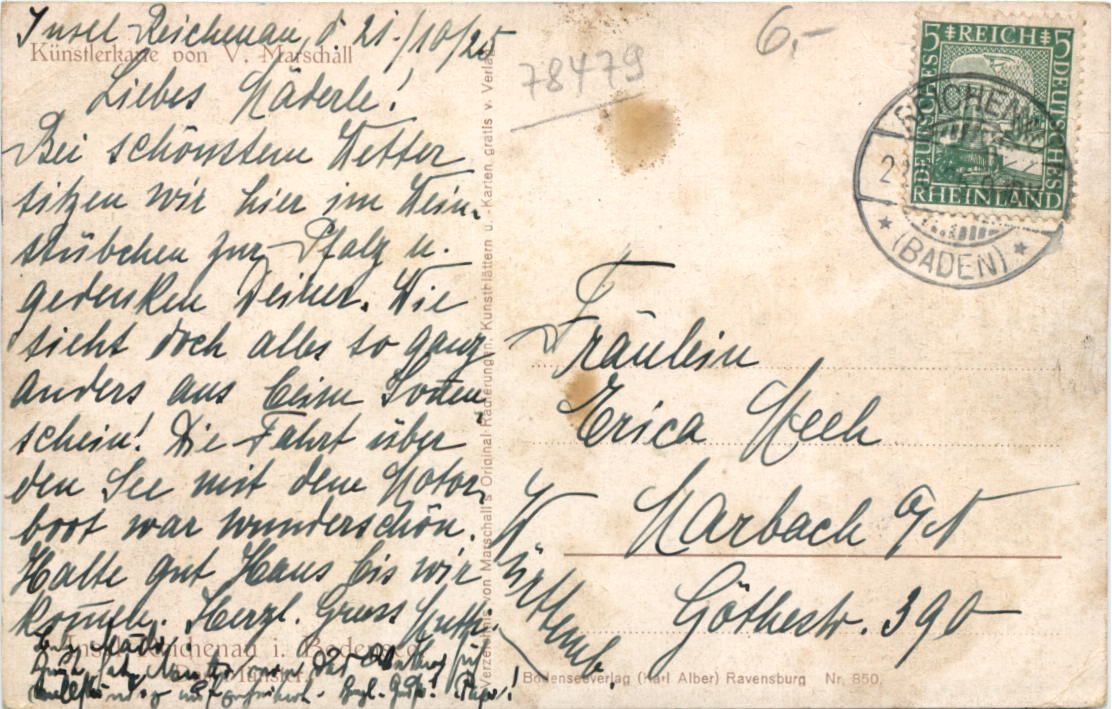 Insel Reichenau, d. 21./10/25
Künstlerkarte von V. Marschall
Liebes Mäderle!
Bei schönstem Wetter
sitzen wir hier im Wein-
stübchen zur Pfalz u.
gedenken Deiner. Wie
sieht doch alles so ganz
anders aus beim Sonnen-
schein! Die Fahrt über
den See mit dem Motor-
boot war wunderschön.
Halte gut Haus bis wir
kommen. Herzl. Gruss
Insel Reichenau i. Bodensee
Münster
Verzeichnis von Marschall's Original-Radierungen, Kunstblättern u. Karten gratis v. Verlag
78479
6,-
5 REICH 5
DEUTSCHES
DEUTSCHES
RHEINLAND
REICHENAU
(BADEN)
Fräulein
Erica
Marbach a/N
Württemb.
Göthestr. 390
Bodenseeverlag (Karl Alber) Ravensburg Nr. 850.